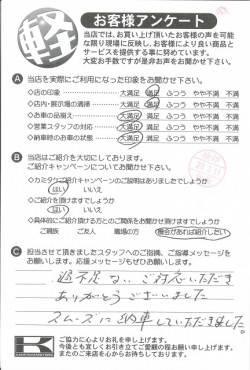 軽
お客様アンケート
当店では、お買い上げ頂いたお客様の声を可能
な限り現場に反映し、お客様により良い商品と
サービスを提供する事に努めています。
大変お手数ですが是非お声をお聞かせ下さい。
A 当店を実際にご利用になった印象をお聞かせ下さい。
◇店の印象 大満足 満足 ふつう やや不満 不満
◇店内・展示場の清掃 大満足 満足 ふつう やや不満 不満
◇お車の品揃え 大満足 満足 ふつう やや不満 不満
◇営業スタッフの対応 大満足 満足 ふつう やや不満 不満
◇納車時のお車の状態 大満足 満足 ふつう やや不満 不満
B 当店はご紹介を大切にしております。
ご紹介キャンペーンについてお聞かせ下さい。
◇カミタウご紹介キャンペーンのご説明はありましたでしょうか
はい いいえ
◇ご紹介を頂けますでしょうか
はい いいえ
◇具体的にご紹介頂ける方とのご関係をお聞かせ頂けますでしょうか
ご親族 ご友人 職場の方 機会があれば紹介したい
C 担当させて頂きましたスタッフへのご指摘、ご指導メッセージを
お願いします。応援メッセージもぜひお願いします。
過不足ないご対応いただき
ありがとうございました
スムーズに納車していただきました。
K
ご協力に心よりお礼を申し上げます。
今後とも宜しくお引き立てご愛顧の程お願い申し上げます。
またのご来店を心からお待ちしております。